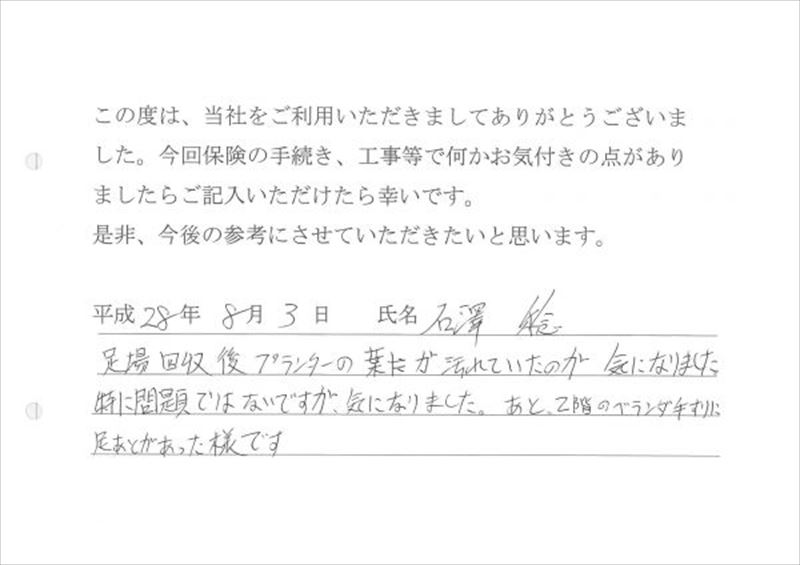 この度は、当社をご利用いただきましてありがとうございま
した。今回保険の手続き、工事等で何かお気付きの点があり
ましたらご記入いただけたら幸いです。
是非、今後の参考にさせていただきたいと思います。
平成28年 8月 3日 氏名 石澤 稔
足場回収後プランターの葉だが汚れていたのが 気になりました
特に問題ではないですが、気になりました。あと、2階のベランダ手すりに
足あとがあった様です